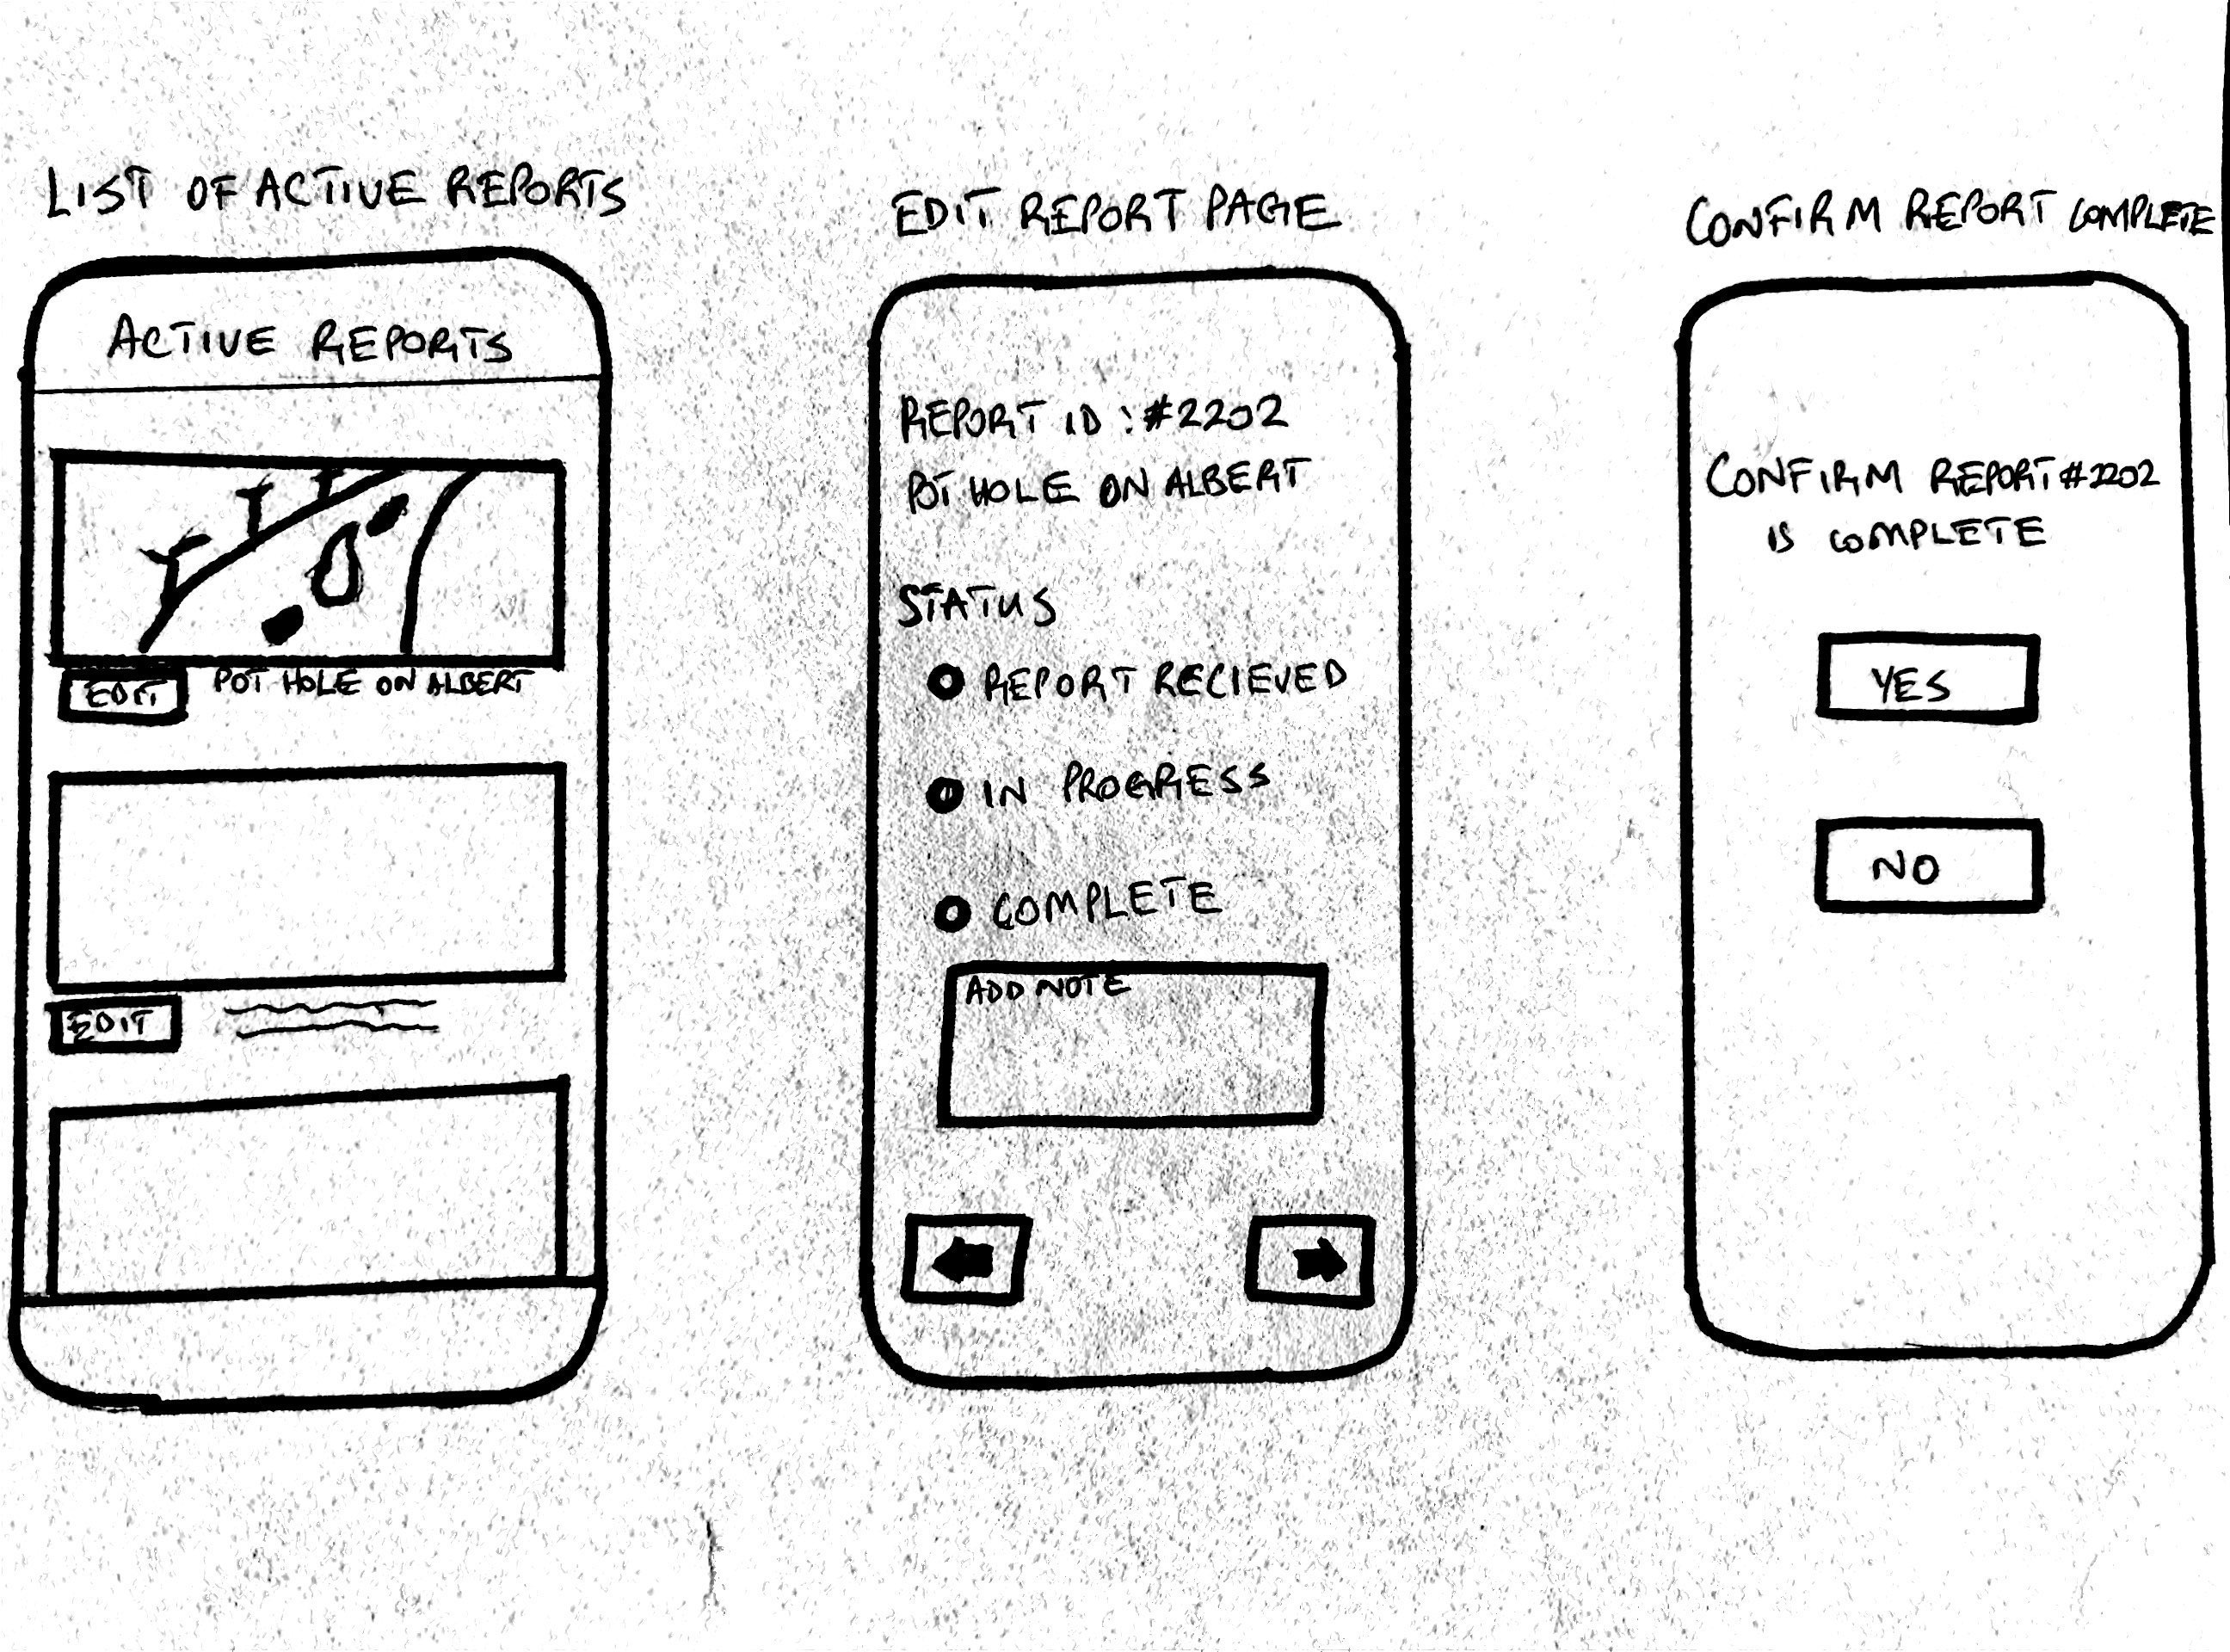 LIST OF ACTIVE REPORTS
ACTIVE REPORTS
EDIT POT HOLE ON ALBERT
EDIT
EDIT REPORT PAGE
REPORT ID : #2202
POT HOLE ON ALBERT
STATUS
REPORT RECIEVED
IN PROGRESS
COMPLETE
ADD NOTE
CONFIRM REPORT COMPLETE
CONFIRM REPORT #2202
IS COMPLETE
YES
NO